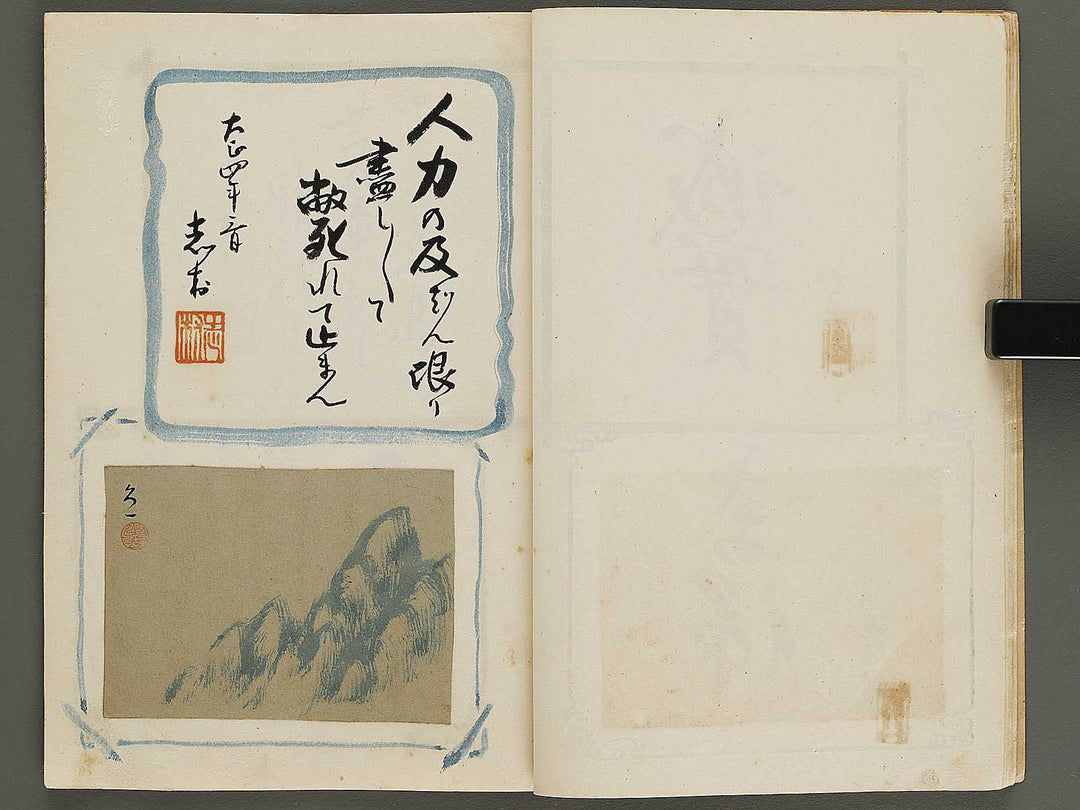 人力の及ばん限り
盡しくて
敝死れて止まん
大正四年一月
志村
久一